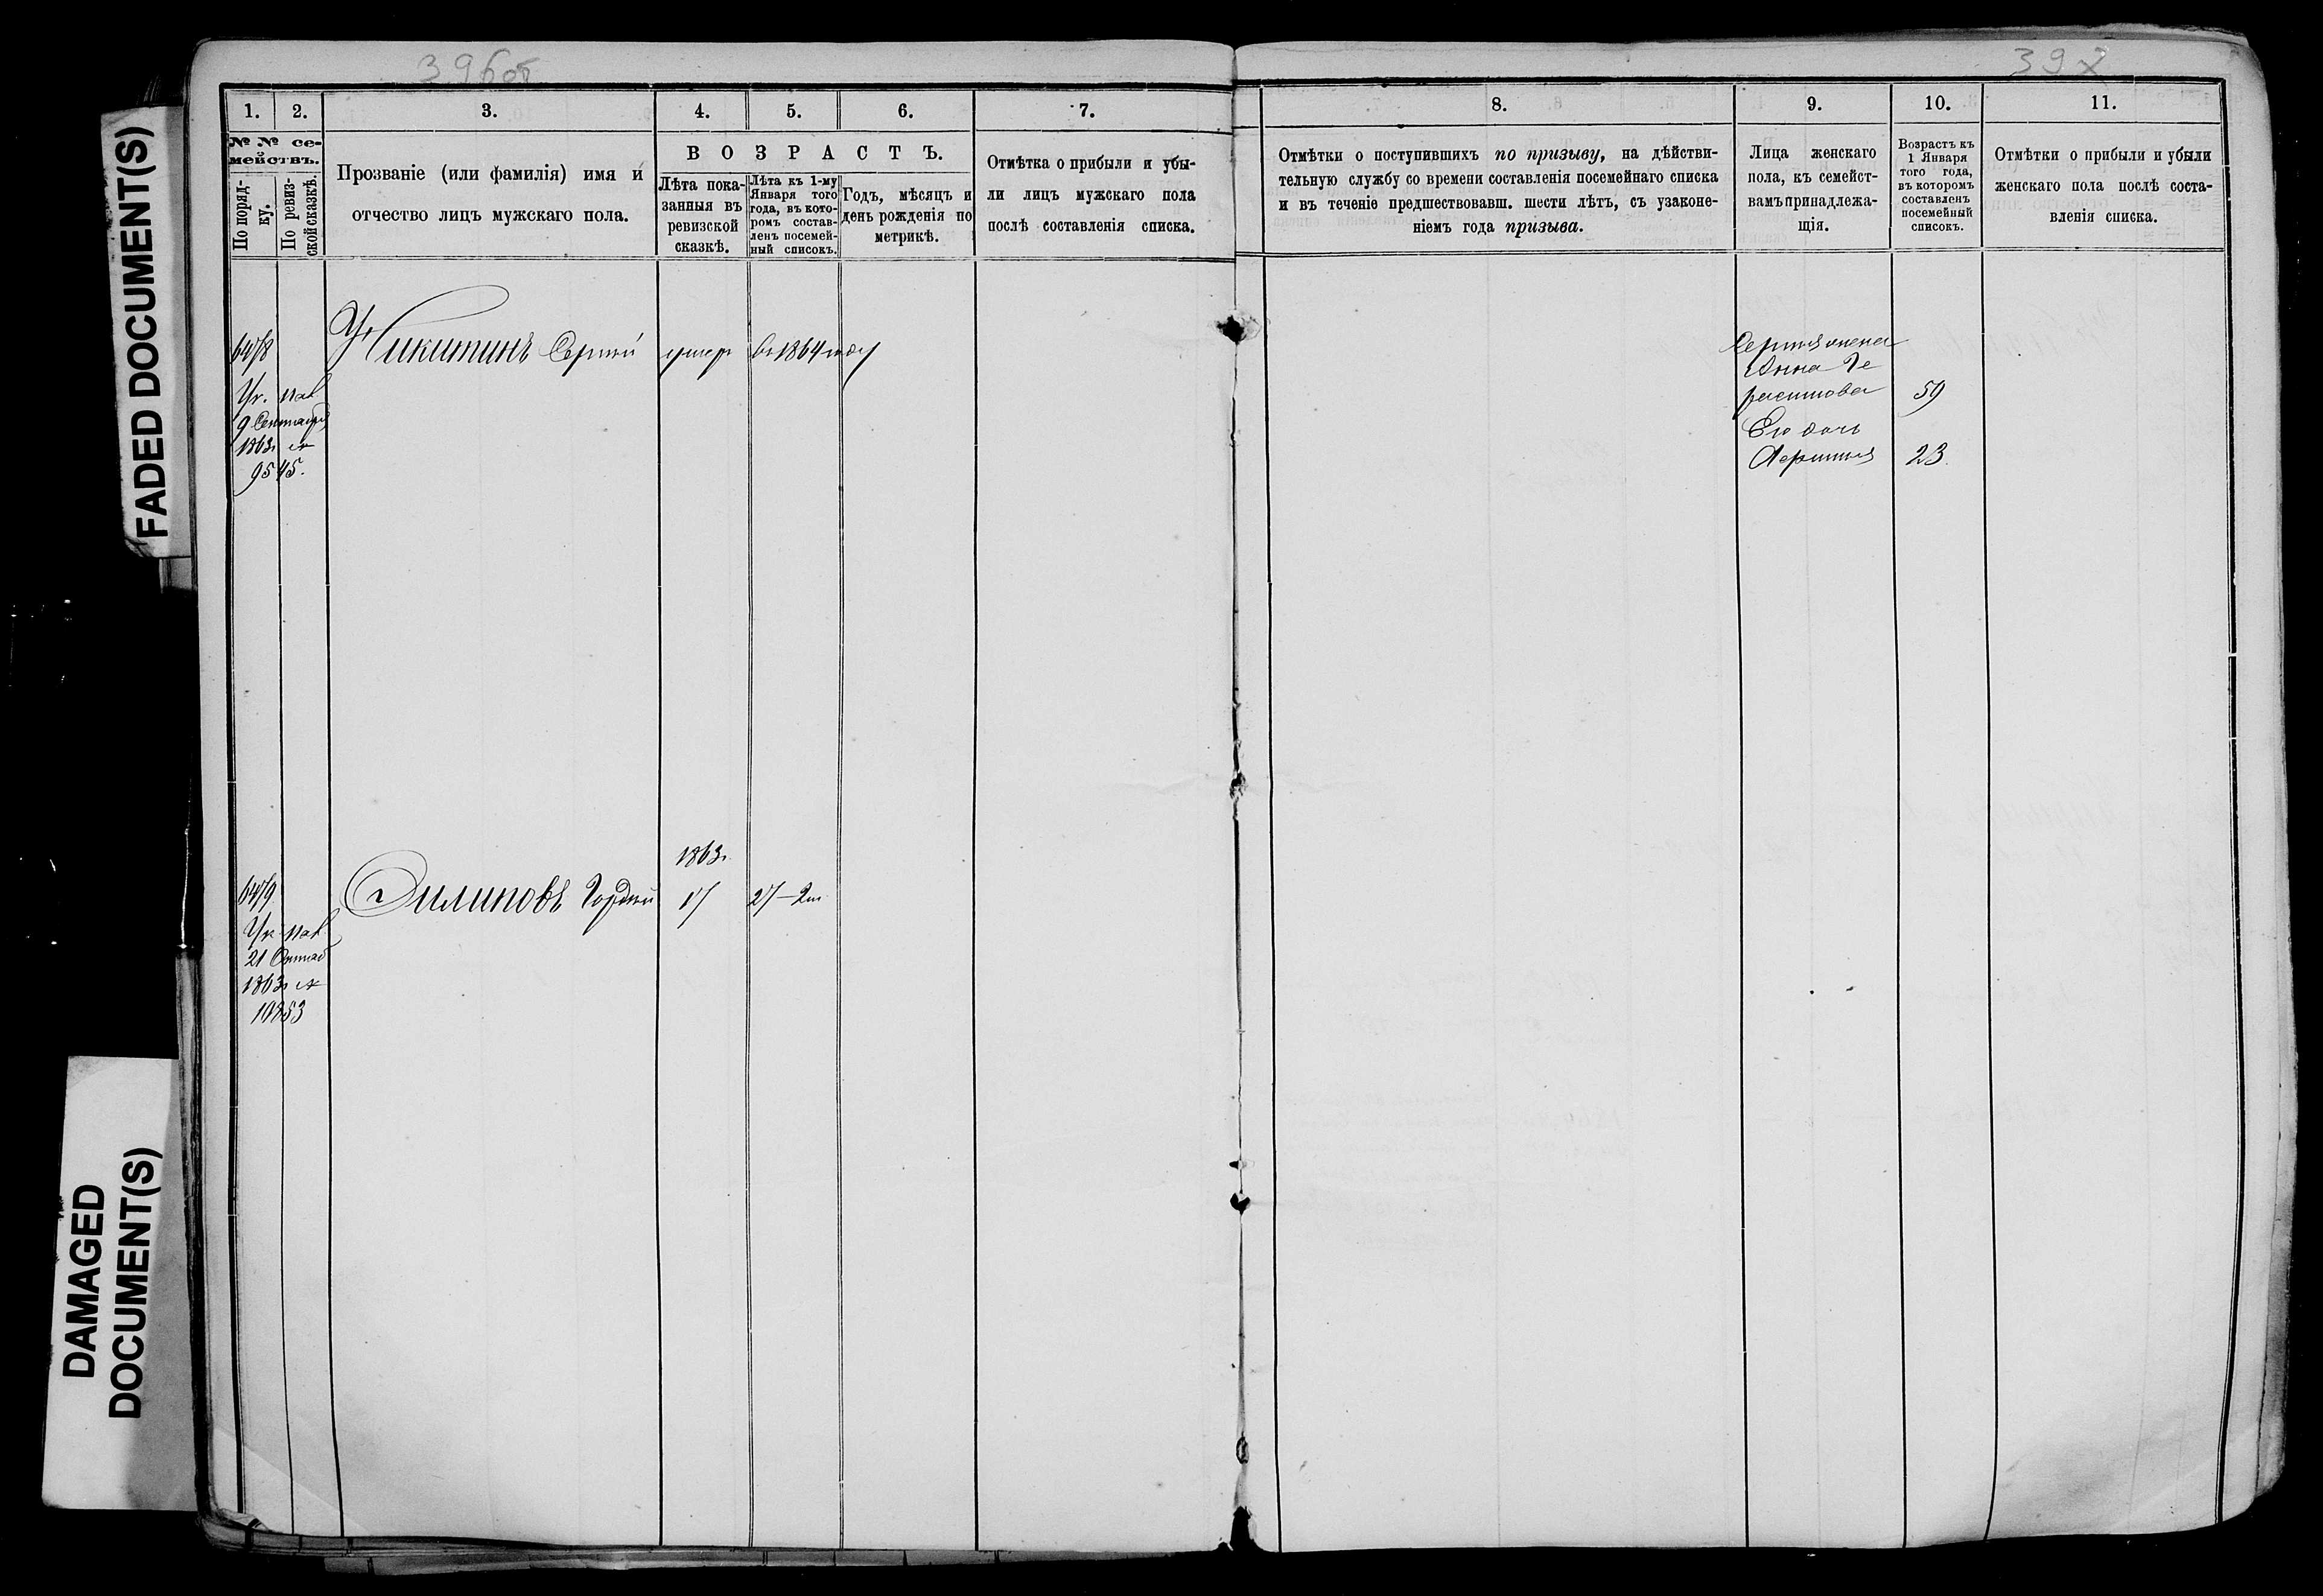 396об
397
FADED DOCUMENT(S)
DAMAGED
DOCUMENT(S)
1.
2.
3.
4.
5.
6.
7.
№ № се-
мействъ.
По поряд-
ку.
По ревиз-
ской сказкѣ.
Прозваніе (или фамилія) имя и
отчество лицъ мужскаго пола.
ВОЗРАСТЪ.
Лѣта пока-
занныя въ
ревизской
сказкѣ.
Лѣта къ 1-му
Января того
года, въ кото-
ромъ состав-
ленъ посемей-
ный списокъ.
Годъ, мѣсяцъ и
день рожденія по
метрикѣ.
Отмѣтка о прибыли и убы-
ли лицъ мужскаго пола
послѣ составленія списка.
8.
9.
10.
11.
Отмѣтки о поступившихъ по призыву, на дѣйстви-
тельную службу со времени составленія посемейнаго списка
и въ теченіе предшествовавш. шести лѣтъ, съ узаконе-
ніемъ года призыва.
Лица женскаго
пола, къ семейст-
вамъ принадлежа-
щія.
Возрастъ къ
1 Января
того года,
въ которомъ
составленъ
посемейный
списокъ.
Отмѣтки о прибыли и убыли
женскаго пола послѣ соста-
вленія списка.
Никитинъ Сергий умер в 1864 году
Ук. пал
9 Сентября
1863г №
9545.
Сергия жена
Анна Ге
расимова 59
Его дочь
23.
1863г.
Филиповъ Гордий 17 27
Ук. пал
21
1863г №
10853